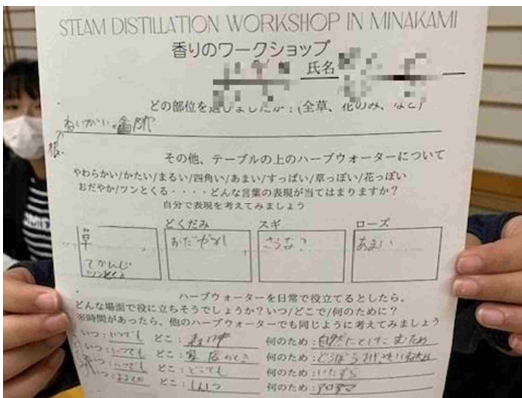 STEAM DISTILLATION WORKSHOP IN MINAKAMI
香りのワークショップ
氏名
どの部位を選びましたか:(全草、花のみ、など)
ねいがい 全部
根
その他、テーブルの上のハーブウォーターについて
やわらかい/かたい/まるい/四角い/あまい/すっぱい/草っぽい/花っぽい
おだやか/ツンとくる・・・・どんな言葉の表現が当てはまりますか?
自分で表現を考えてみましょう
どくだみ スギ ローズ
草 おだやか さわな? あまい
てかんじ
ツンとくる
ハーブウォーターを日常で役立てるとしたら。
どんな場面で役に立ちそうでしょうか?いつ/どこで/何のために?
※時間があったら、他のハーブウォーターでも同じように考えてみましょう
いつ:いつでも どこ: 何のため:自然にとけこむため
いつ:いつでも どこ: 何のため:
いつ:いつでも どこ:どこでも 何のため:いたずら
いつ: どこ:しんしつ 何のため:アロマ